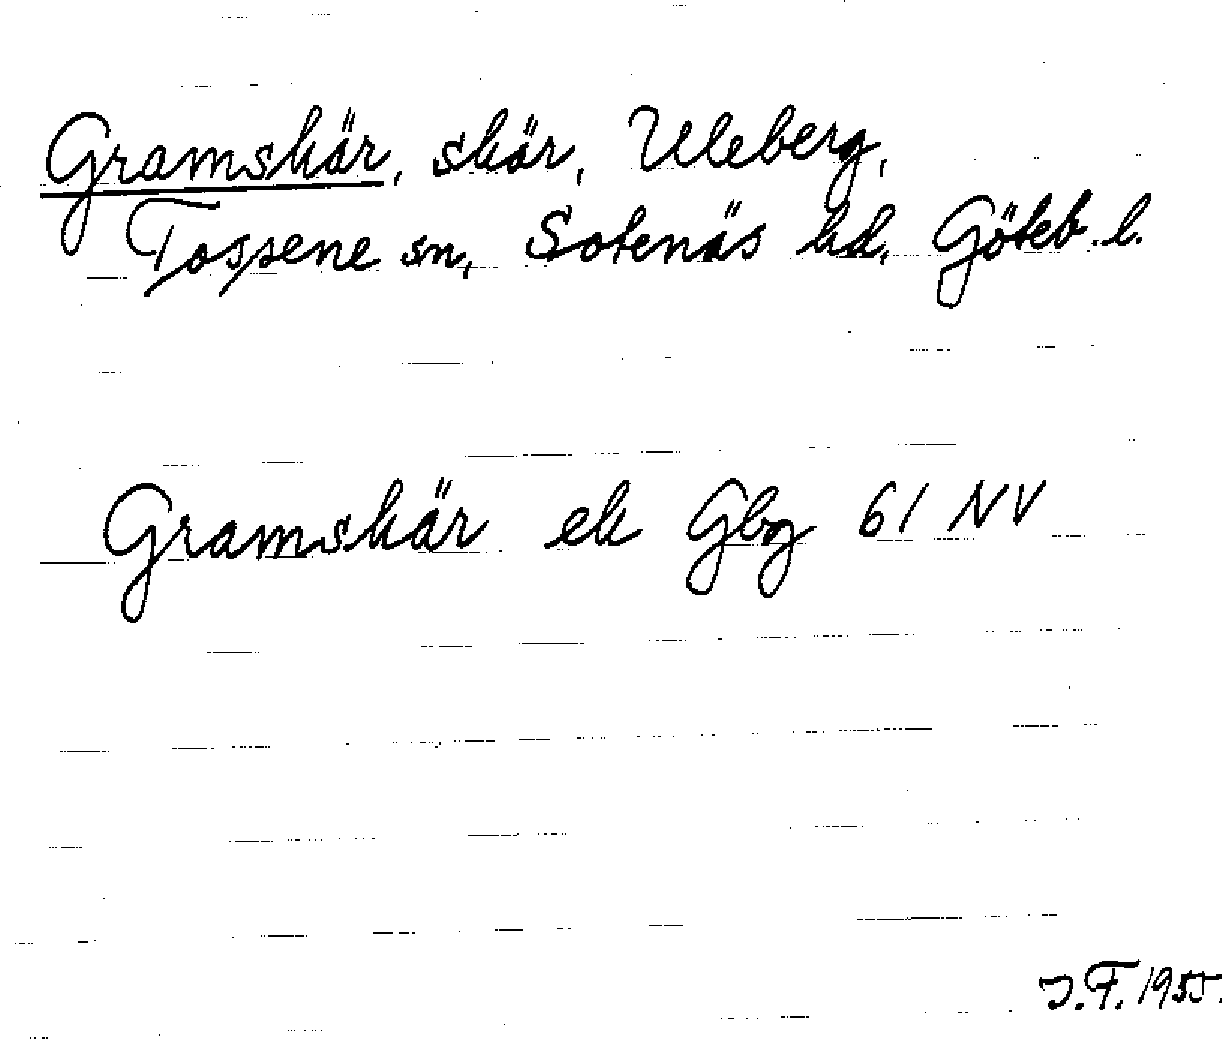 Gramskär, skär, Uleberg,
Tossene sn, Sotenäs hd, Göteb. l.
Gramskär ek Gbg 61 NV
J.F. 1955.